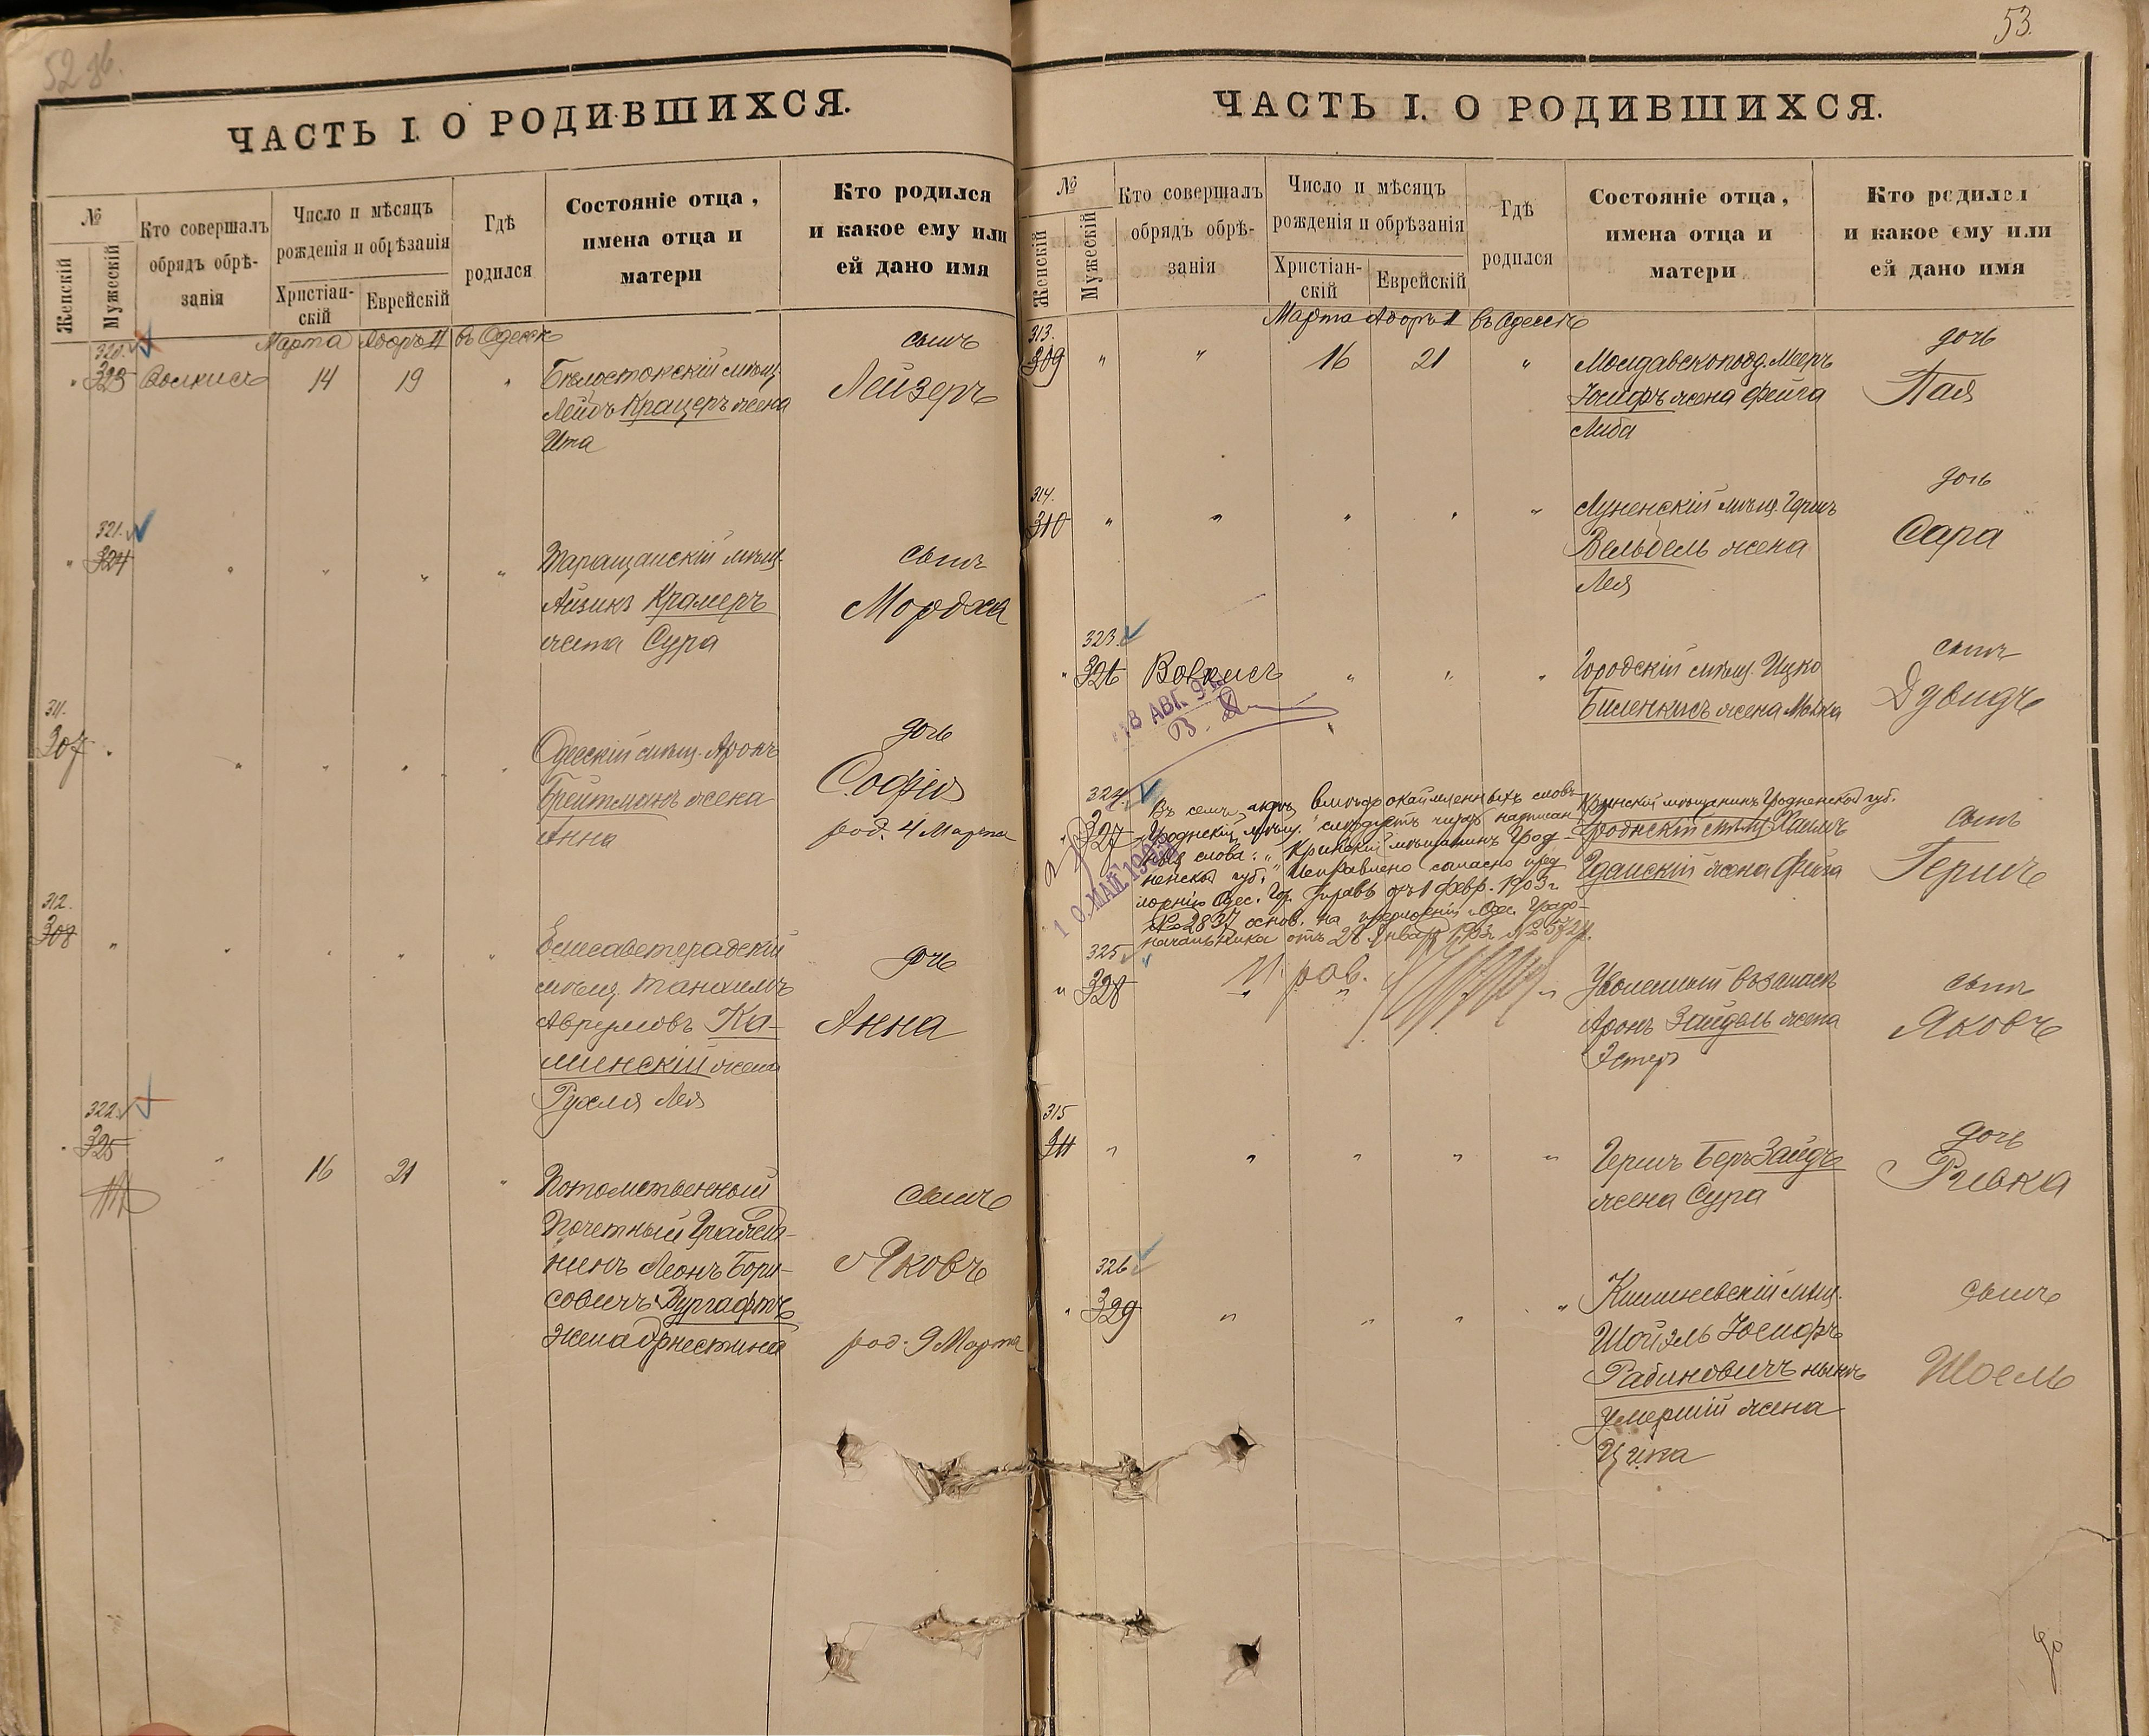 52 зв.
ЧАСТЬ I. О РОДИВШИХСЯ.
№
Женскій
Мужескій
Кто совершалъ
обрядъ обрѣ-
занія
Число и мѣсяцъ
рожденія и обрѣзанія
Христіан-
скій
Еврейскій
Гдѣ
родился
Состояніе отца,
имена отца и
матери
Кто родился
и какое ему или
ей дано имя
Марта Адоръ II въ Одессѣ
320.
" 323 Волкисъ 14 19 "
Бѣлостокскій мѣщ.
Лейбъ Крацеръ жена
Ита
сынъ
Лейзеръ
321.
" 324 " " " "
Таращанскій мѣщ.
Айзикъ Крамеръ
жена Сура
сынъ
Мордха
311.
307 " " " " " "
Одесскій мѣщ. Аронъ
Брейтманъ жена
Анна
дочь
Софія
род. 4 Марта
312.
308 " " " " "
Елисаветградскій
мѣщ. Танхимъ
Аврумовъ Ка-
минскій жена
Рухля Лея
дочь
Анна
322.
" 325 " 16 21 "
Потомственный
Почетный Гражда-
нинъ Леонъ Бори-
совичъ Вургафтъ
жена Эрнестина
сынъ
Яковъ
род. 9 Марта
53.
ЧАСТЬ I. О РОДИВШИХСЯ.
№
Женскій
Мужескій
Кто совершалъ
обрядъ обрѣ-
занія
Число и мѣсяцъ
рожденія и обрѣзанія
Христіан-
скій
Еврейскій
Гдѣ
родился
Состояніе отца,
имена отца и
матери
Кто родился
и какое ему или
ей дано имя
Марта Адоръ II въ Одессѣ
313.
309 " " 16 21 "
Молдавскопод. Мееръ
Юсифъ жена Фейга
Либа
дочь
Пая
314.
310 " " " " "
Лузенскій мѣщ. Гершъ
Вельбель жена
Лея
дочь
Сара
323.
" 326 Волкисъ " " "
18 АВГ. 9
Городскій мѣщ. Ицко
Биленкисъ жена Молка
сынъ
Дувидъ
324.
327
Въ семъ актѣ вмѣсто окаймленныхъ словъ
"Гроднскій мѣщ." слѣдуетъ читать надписан-
ныя слова: "Кринскій мѣщанинъ Грод-
ненской губ." Исправлено согласно пред-
ложенію Одес. Гор. Управы отъ 1 февр. 1903 г.
№ 2837 основ. на предложеніи Одес. Градо-
начальника отъ 28 Января 1903 г. №
10 МАЙ 1903
Кринскій мѣщанинъ Гродненской губ.
Гроднскій мѣщ. Хаимъ
Гданскій жена Фейга
сынъ
Гершъ
325
" 328 " " "
И. рав.
Уволенный въ запасъ
Аронъ Зайдель жена
Эстеръ
сынъ
Яковъ
315
311 " " " " "
Гершъ Беръ Зайдъ
жена Сура
дочь
Ривка
326
" 329 " " " "
Кишиневскій мѣщ.
Шойэль Юсифъ
Рабиновичъ нынѣ
умершій жена
Ципа
сынъ
Шоель